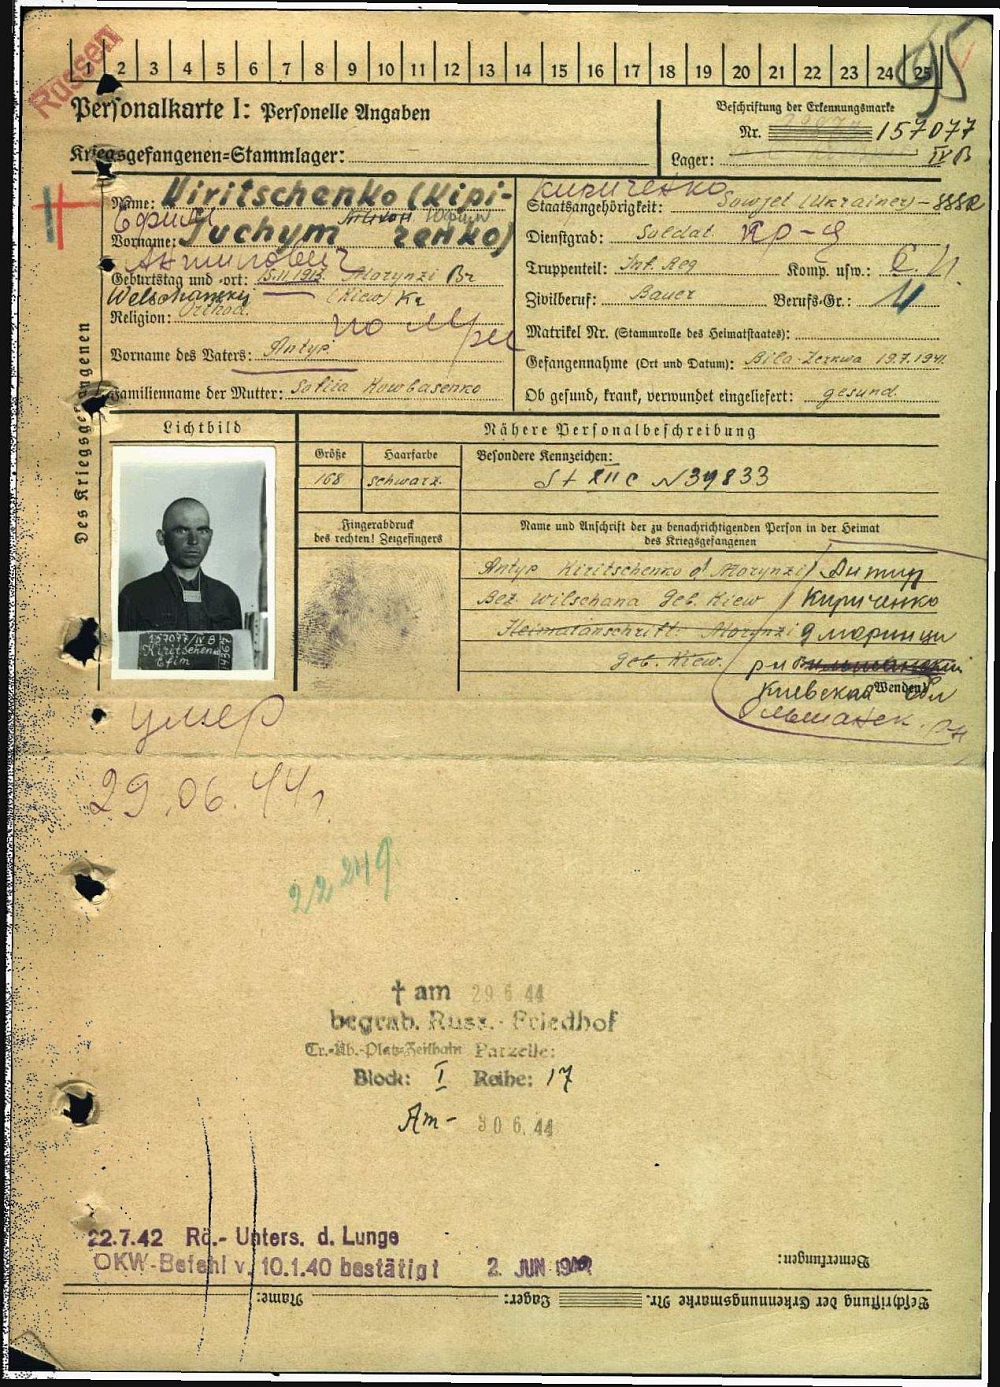 Russen
1 2 3 4 5 6 7 8 9 10 11 12 13 14 15 16 17 18 19 20 21 22 23 24 25
95
Personalkarte I: Personelle Angaben
Beschriftung der Erkennungsmarke
Nr. 157077
Kriegsgefangenen-Stammlager:
Lager: IV B
Des Kriegsgefangenen
Name: Kiritschenko (Кири-
Vorname: Juchym ченко)
Ефим
Антипович
Geburtstag und -ort: 5.11.1913 Morynzi
Welschanskij (Kiew)
Religion: Orthod.
Vorname des Vaters: Antyp
Familienname der Mutter: Kowbasenko
Кириченко
Staatsangehörigkeit: Sowjet (Ukrainer) - SSSR
Dienstgrad: Soldat кр-ц
Truppenteil: Inf. Reg Komp. usw.:
Zivilberuf: Bauer Berufs-Gr.:
Matrikel Nr. (Stammrolle des Heimatstaates):
Gefangennahme (Ort und Datum): Bila-Zerkwa 19.7.1941
Ob gesund, krank, verwundet eingeliefert: gesund
Lichtbild
Nähere Personalbeschreibung
Größe
Haarfarbe
Besondere Kennzeichen:
168 schwarz
St XII C N 39833
Fingerabdruck
des rechten! Zeigefingers
Name und Anschrift der zu benachrichtigenden Person in der Heimat
des Kriegsgefangenen
Antyp Kiritschenko Morynzi Антип
Bez. Wilschana Geb. Kiew Кириченко
Heimatanschrift: Morynzi д Маринци
Geb. Kiew.
Киевская обл
Wenden!
Ольшанск. р-н
157077/IV B
Kiritschenko
Efim
умер
29.06.44г
22249
† am 29 6 44
begrab. Russ.-Friedhof
Tr.-Üb.-Platz-Zeithain Parzelle:
Block: I Reihe: 17
Am- 30 6. 44
22.7.42 Rö.- Unters. d. Lunge
OKW-Befehl v. 10.1.40 bestätigt 2. JUN 1942
Bemerkungen:
Beschriftung der Erkennungsmarke Nr. Lager: Name: